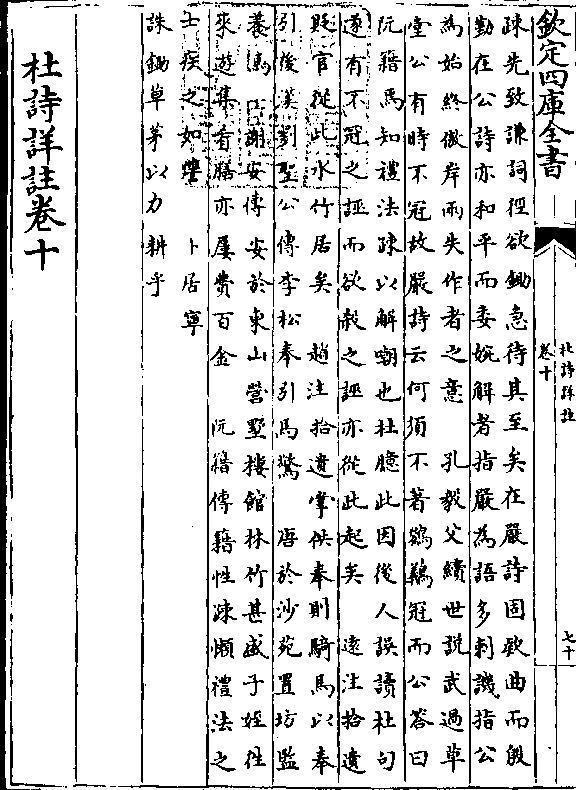 欽定四庫全書
杜詩詳註
卷十
七十
疎先致謙詞徑欲鋤急待其至矣在嚴詩固欵曲而殷
勤在公詩亦和平而委婉解者指嚴為語多刺譏指公
為始終傲岸兩失作者之意　孔毅父續世説武過草
堂公有時不冠故嚴詩云何須不著鵔鸃冠而公答曰
阮籍焉知禮法疎以解嘲也杜臆此因後人誤讀杜句
遂有不冠之誣而欲殺之誣亦從此起矣　遠注拾遺
貶官從此水竹居矣　趙注拾遺掌供奉則騎馬以奉
引後漢劉聖公傳李松奉引馬驚　唐於沙苑置坊監
養馬　謝安傳安於東山營墅樓館林竹甚盛子姪往
來遊集肴膳亦屢費百金　阮籍傳籍性疎懶禮法之
士疾之如讐　卜居寧
誅鋤草茅以力耕乎
杜詩詳註卷十